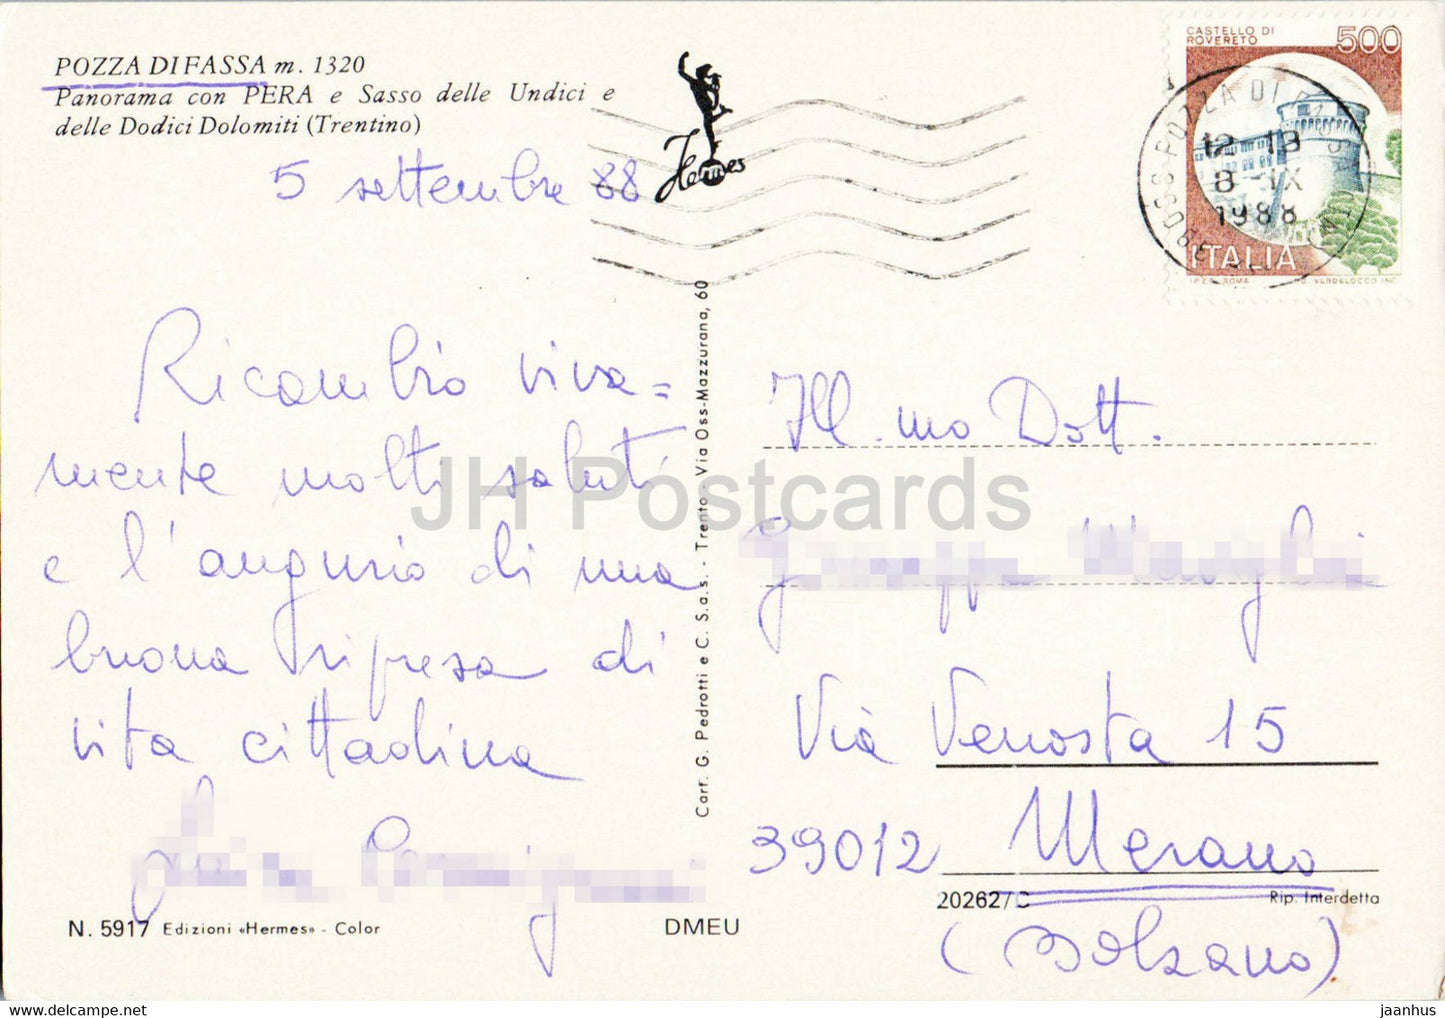 POZZA DI FASSA m. 1320
Panorama con PERA e Sasso delle Undici e
delle Dodici Dolomiti (Trentino)
Hermes
CASTELLO DI
ROVERETO
500
ITALIA
I.P.Z.S. ROMA
POZZA DI FASSA
12-13
8-IX
1988
5 settembre 88
Ricambio viva=
mente molti saluti
e l'augurio di una
buona ripresa di
vita cittadina
N. 5917 Edizioni «Hermes» - Color
DMEU
Cart. G. Pedrotti e C. S.a.s. - Trento - Via Oss-Mazzurana, 60
Ill.mo Dott.
Via Venosta 15
39012 Merano
(Bolzano)
20262/C
Rip. Interdetta
JH Postcards
jaanhus